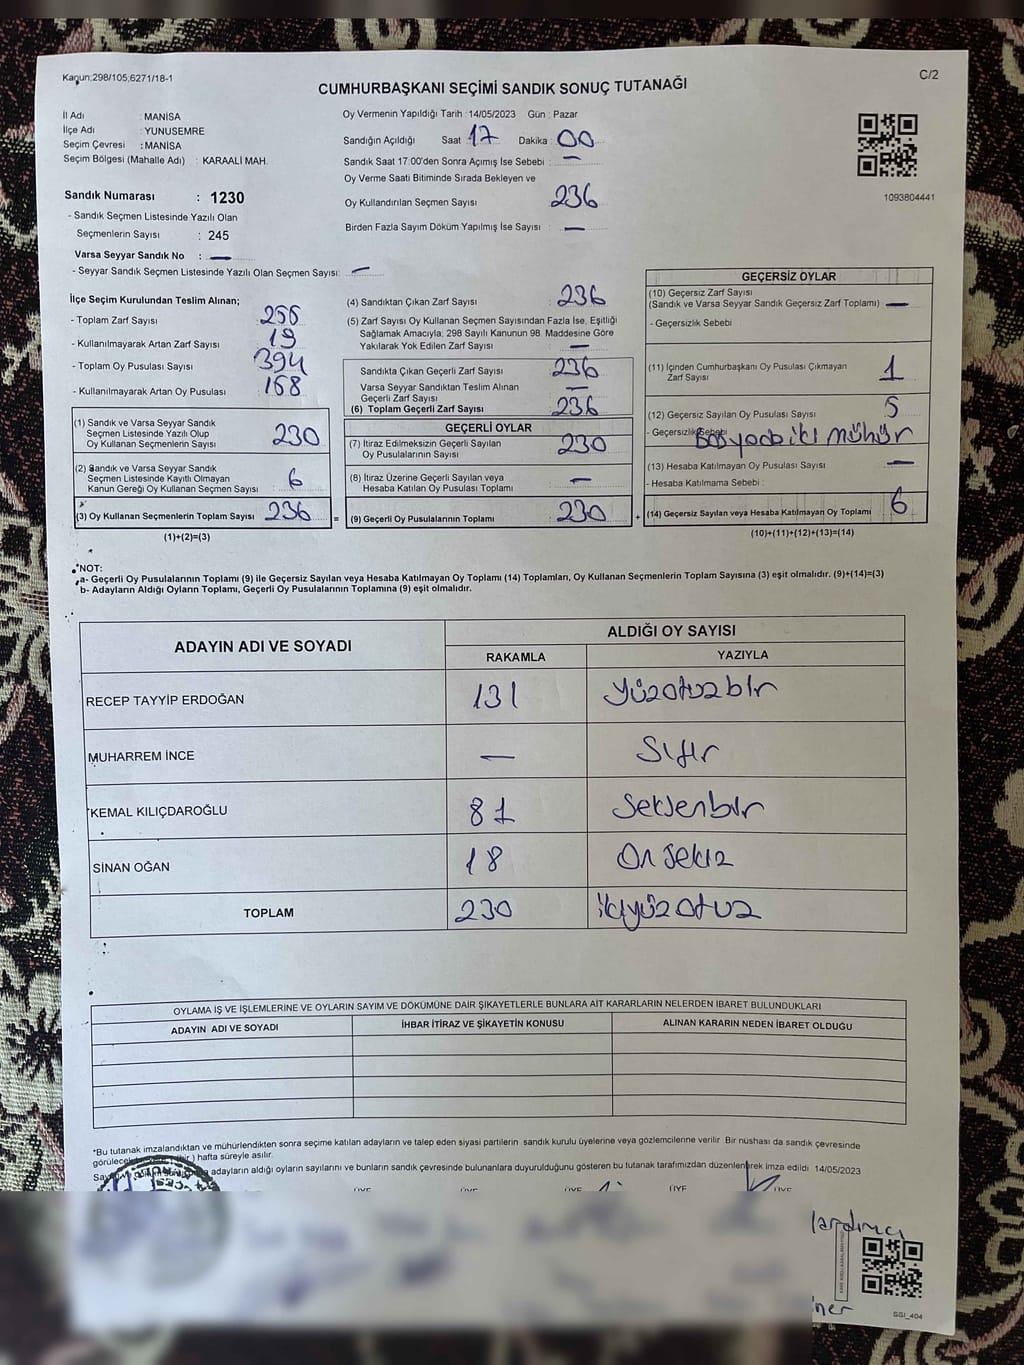 Kanun:298/105;6271/18-1
C/2
CUMHURBAŞKANI SEÇİMİ SANDIK SONUÇ TUTANAĞI
İl Adı : MANİSA
İlçe Adı : YUNUSEMRE
Seçim Çevresi : MANİSA
Seçim Bölgesi (Mahalle Adı) : KARAALİ MAH.
Sandık Numarası : 1230
- Sandık Seçmen Listesinde Yazılı Olan
Seçmenlerin Sayısı : 245
Varsa Seyyar Sandık No : —
- Seyyar Sandık Seçmen Listesinde Yazılı Olan Seçmen Sayısı: —
Oy Vermenin Yapıldığı Tarih : 14/05/2023 Gün : Pazar
Sandığın Açıldığı Saat 17 Dakika : 00
Sandık Saat 17.00'den Sonra Açımış İse Sebebi : —
Oy Verme Saati Bitiminde Sırada Bekleyen ve
Oy Kullandırılan Seçmen Sayısı 236
Birden Fazla Sayım Döküm Yapılmış İse Sayısı : —
1093804441
İlçe Seçim Kurulundan Teslim Alınan;
- Toplam Zarf Sayısı : 255
- Kullanılmayarak Artan Zarf Sayısı : 19
- Toplam Oy Pusulası Sayısı : 394
- Kullanılmayarak Artan Oy Pusulası : 168
(1) Sandık ve Varsa Seyyar Sandık
Seçmen Listesinde Yazılı Olup
Oy Kullanan Seçmenlerin Sayısı 230
(2) Sandık ve Varsa Seyyar Sandık
Seçmen Listesinde Kayıtlı Olmayan
Kanun Gereği Oy Kullanan Seçmen Sayısı 6
(3) Oy Kullanan Seçmenlerin Toplam Sayısı 236
(1)+(2)=(3)
(4) Sandıktan Çıkan Zarf Sayısı : 236
(5) Zarf Sayısı Oy Kullanan Seçmen Sayısından Fazla İse, Eşitliği
Sağlamak Amacıyla; 298 Sayılı Kanunun 98. Maddesine Göre
Yakılarak Yok Edilen Zarf Sayısı —
Sandıkta Çıkan Geçerli Zarf Sayısı 236
Varsa Seyyar Sandıktan Teslim Alınan
Geçerli Zarf Sayısı —
(6) Toplam Geçerli Zarf Sayısı 236
GEÇERLİ OYLAR
(7) İtiraz Edilmeksizin Geçerli Sayılan
Oy Pusulalarının Sayısı 230
(8) İtiraz Üzerine Geçerli Sayılan veya
Hesaba Katılan Oy Pusulası Toplamı —
= (9) Geçerli Oy Pusulalarının Toplamı 230
GEÇERSİZ OYLAR
(10) Geçersiz Zarf Sayısı
(Sandık ve Varsa Seyyar Sandık Geçersiz Zarf Toplamı) —
- Geçersizlik Sebebi
(11) İçinden Cumhurbaşkanı Oy Pusulası Çıkmayan
Zarf Sayısı 1
(12) Geçersiz Sayılan Oy Pusulası Sayısı 5
- Geçersizlik Sebebi iki mühür
(13) Hesaba Katılmayan Oy Pusulası Sayısı —
- Hesaba Katılmama Sebebi :
+ (14) Geçersiz Sayılan veya Hesaba Katılmayan Oy Toplamı 6
(10)+(11)+(12)+(13)=(14)
*NOT:
a- Geçerli Oy Pusulalarının Toplamı (9) ile Geçersiz Sayılan veya Hesaba Katılmayan Oy Toplamı (14) Toplamları, Oy Kullanan Seçmenlerin Toplam Sayısına (3) eşit olmalıdır. (9)+(14)=(3)
b- Adayların Aldığı Oyların Toplamı, Geçerli Oy Pusulalarının Toplamına (9) eşit olmalıdır.
ADAYIN ADI VE SOYADI ALDIĞI OY SAYISI
RAKAMLA YAZIYLA
RECEP TAYYİP ERDOĞAN 131 Yüzotuzbir
MUHARREM İNCE — Sıfır
KEMAL KILIÇDAROĞLU 81 Seksenbir
SİNAN OĞAN 18 On sekiz
TOPLAM 230 ikiyüzotuz
OYLAMA İŞ VE İŞLEMLERİNE VE OYLARIN SAYIM VE DÖKÜMÜNE DAİR ŞİKAYETLERLE BUNLARA AİT KARARLARIN NELERDEN İBARET BULUNDUKLARI
ADAYIN ADI VE SOYADI İHBAR İTİRAZ VE ŞİKAYETİN KONUSU ALINAN KARARIN NEDEN İBARET OLDUĞU
*Bu tutanak imzalandıktan ve mühürlendikten sonra seçime katılan adayların ve talep eden siyasi partilerin sandık kurulu üyelerine veya gözlemcilerine verilir. Bir nüshası da sandık çevresinde
hafta süreyle asılır.
adayların aldığı oyların sayılarını ve bunların sandık çevresinde bulunanlara duyurulduğunu gösteren bu tutanak tarafımızdan düzenlenerek imza edildi 14/05/2023
ÜYE ÜYE ÜYE ÜYE ÜYE
Yardımcı
SSI_404